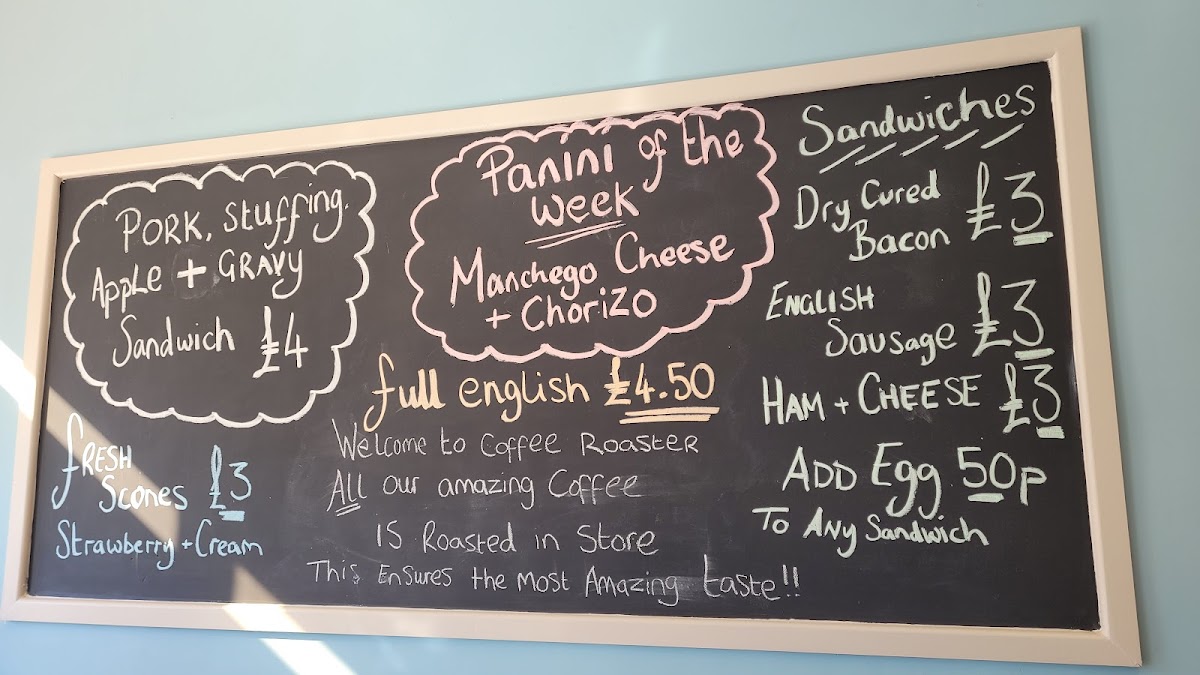 PORK, Stuffing.
Apple + GRAVY
Sandwich £4
fRESH
Scones £3
Strawberry + Cream
Panini of the
Week
Manchego Cheese
+ Chorizo
full english £4.50
Welcome to Coffee Roaster
All our amazing Coffee
IS Roasted in Store
This Ensures the Most Amazing taste!!
Sandwiches
Dry Cured
Bacon £3
ENGLISH
Sausage £3
HAM + CHEESE £3
ADD Egg 50p
To Any Sandwich